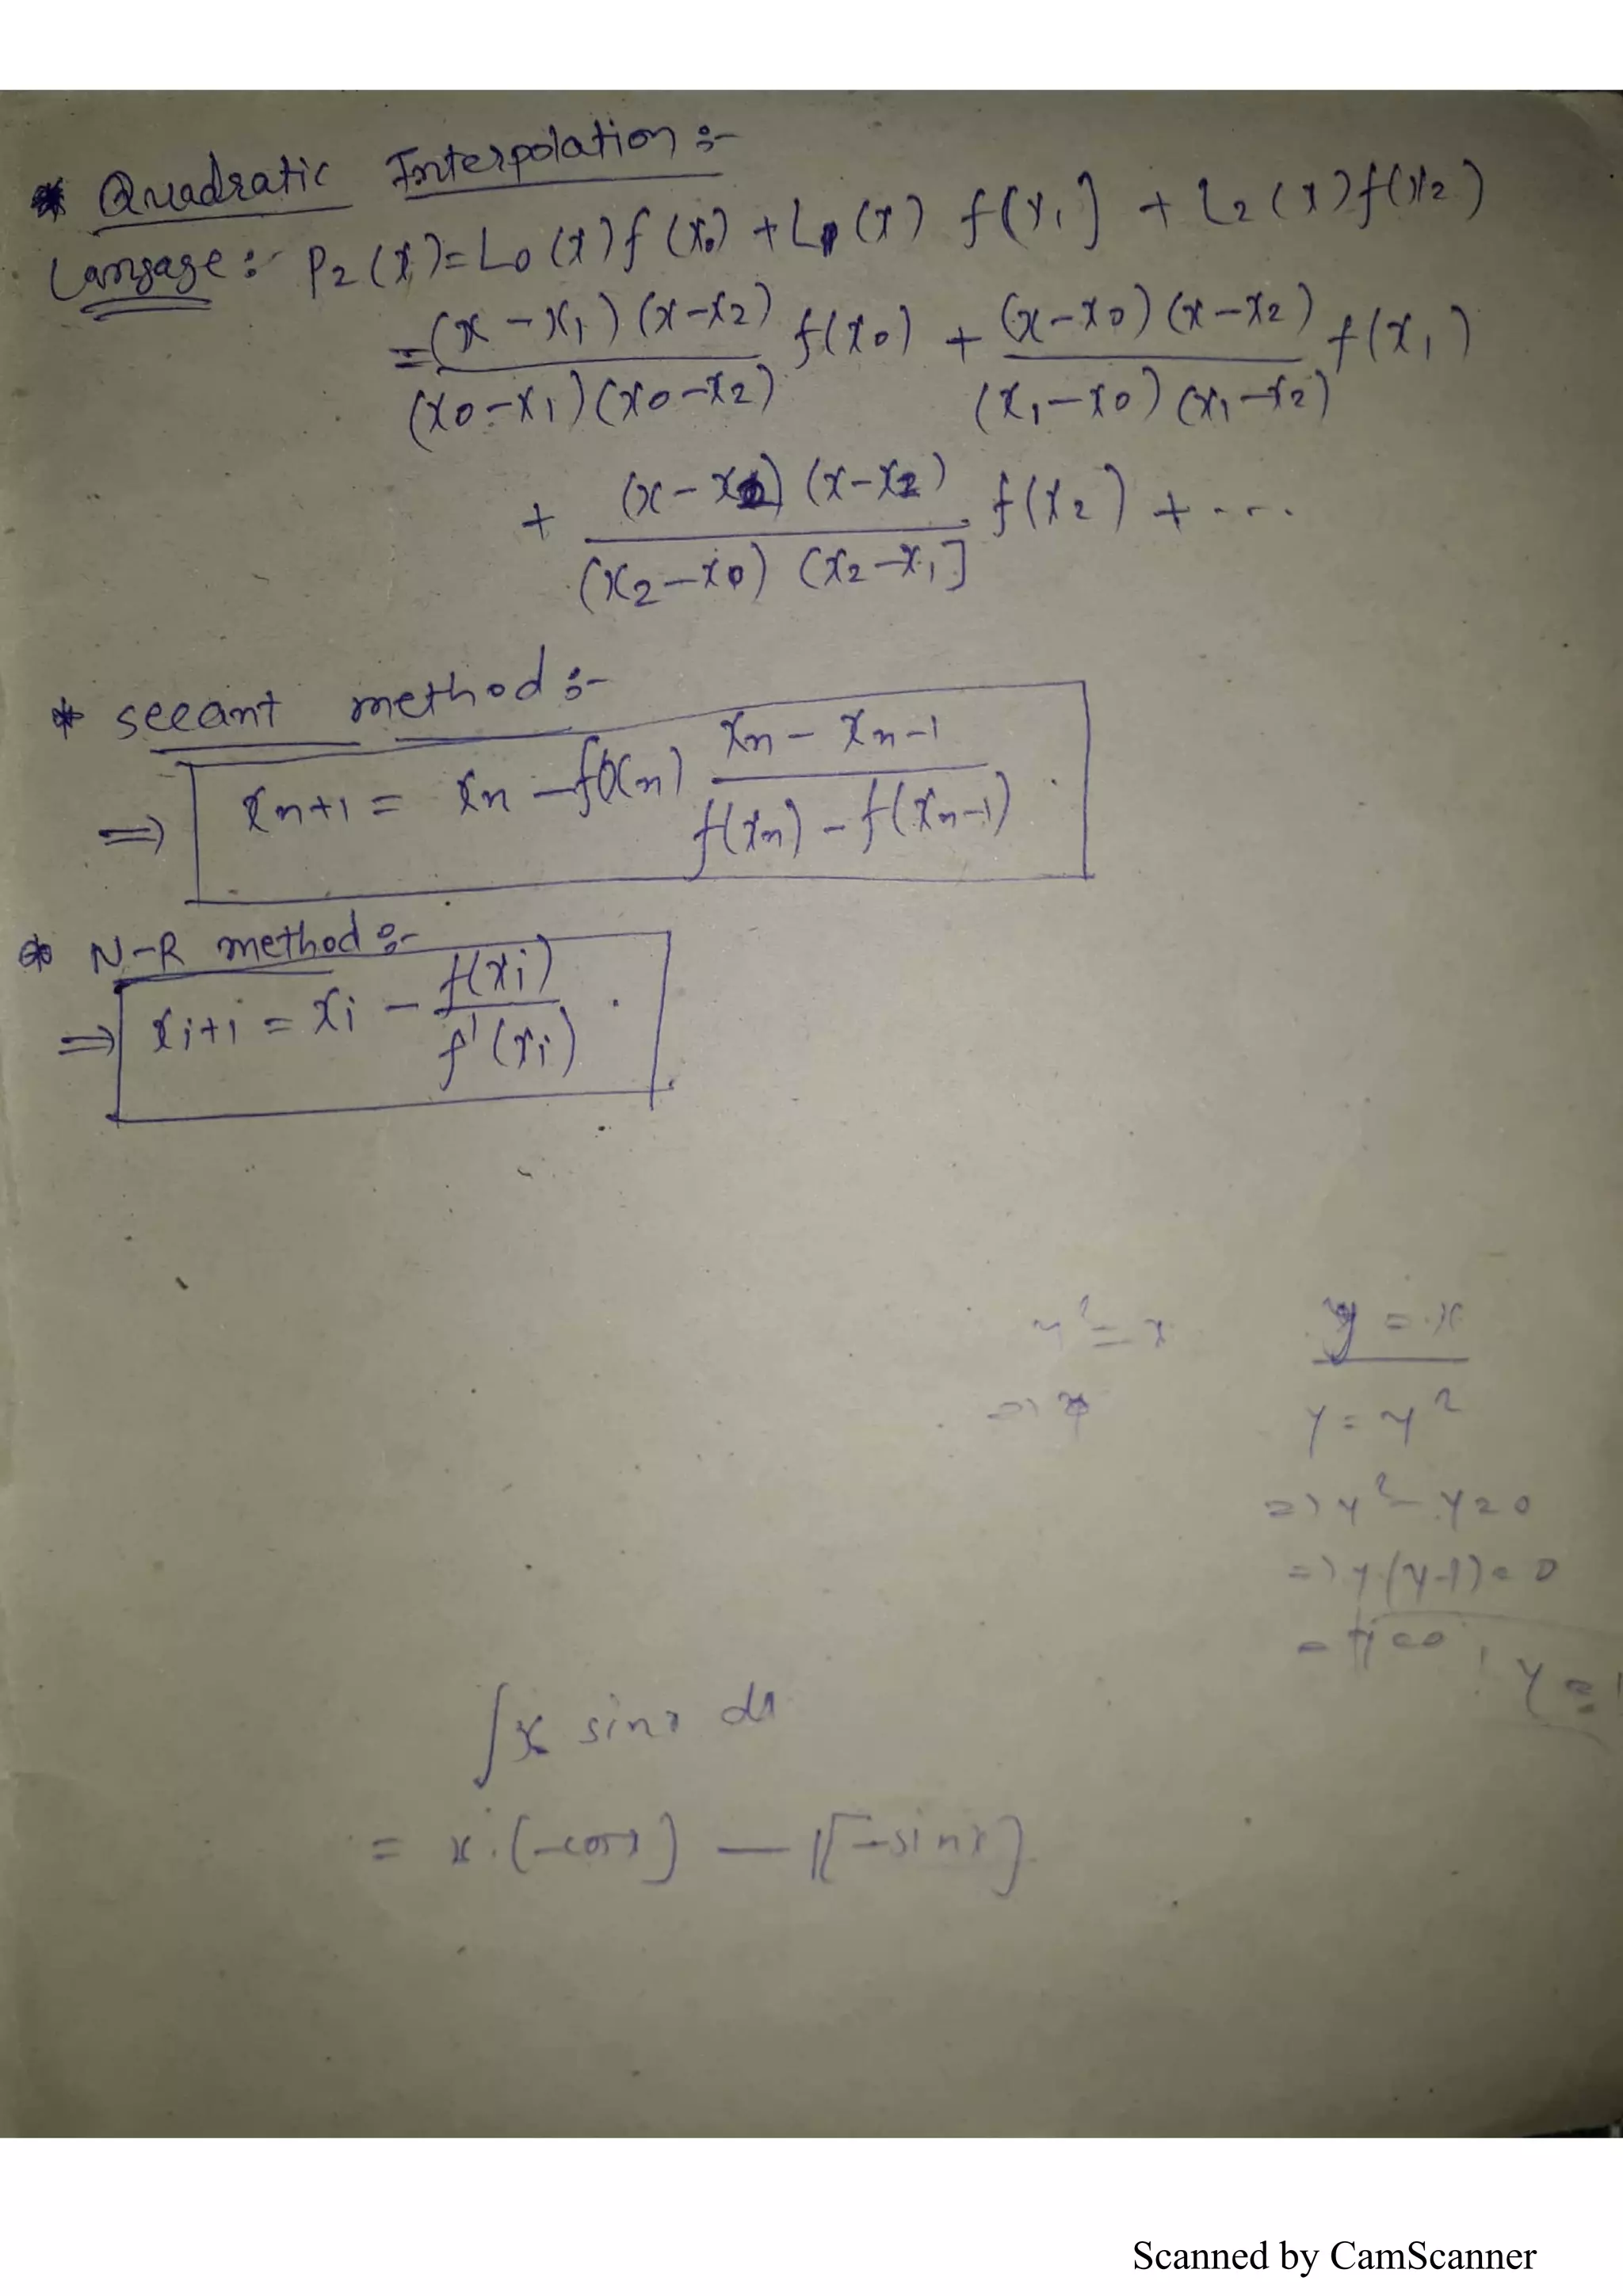 * Quadratic Interpolation :-
Langage :- P2(x) = L0(x) f(x0) + L1(x) f(x1] + L2(x) f(x2)
= (x-x1)(x-x2) / (x0-x1)(x0-x2) f(x0) + (x-x0)(x-x2) / (x1-x0)(x1-x2) f(x1)
+ (x-x2) (x-x2) / (x2-x0) (x2-x1] f(x2) + ....
* secant method :-
⇒ xn+1 = xn - f(xn) xn - xn-1 / f(xn) - f(xn-1) .
* N-R method :-
⇒ xi+1 = xi - f(xi) / f'(xi) .
y² = x
⇒ x
y = x
y = y²
⇒ y² - y = 0
⇒ y(y-1) = 0
= y = 0, y = 1
∫ x sinx dx
= x.(-cosx) - 1[-sinx]
Scanned by CamScanner